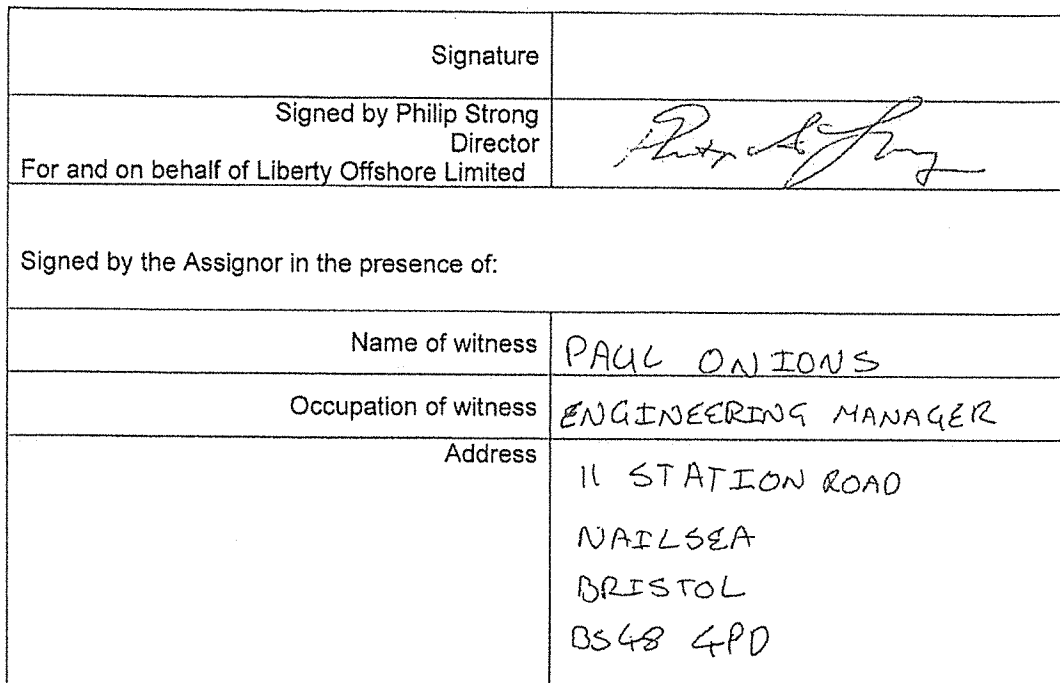 Signature
Signed by Philip Strong
Director
For and on behalf of Liberty Offshore Limited
Signed by the Assignor in the presence of:
Name of witness PAUL ONIONS
Occupation of witness ENGINEERING MANAGER
Address
11 STATION ROAD
NAILSEA
BRISTOL
BS48 4PD